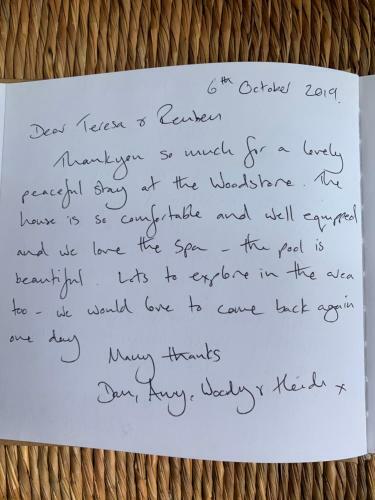 6th October 2019.
Dear Teresa & Reuben
Thankyou so much for a lovely
peaceful stay at the Woodstore. The
house is so comfortable and well equipped
and we love the Spa - the pool is
beautiful. Lots to explore in the area
too - we would love to come back again
one day
Many thanks
Dan, Amy, Woody & Heidi x